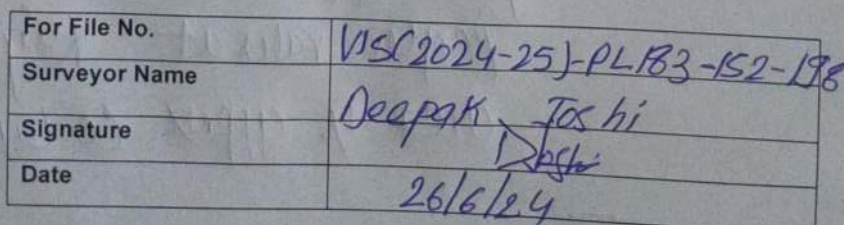 For File No. VIS(2024-25)-PL183-152-198
Surveyor Name Deepak Joshi
Signature DJoshi
Date 26/6/24